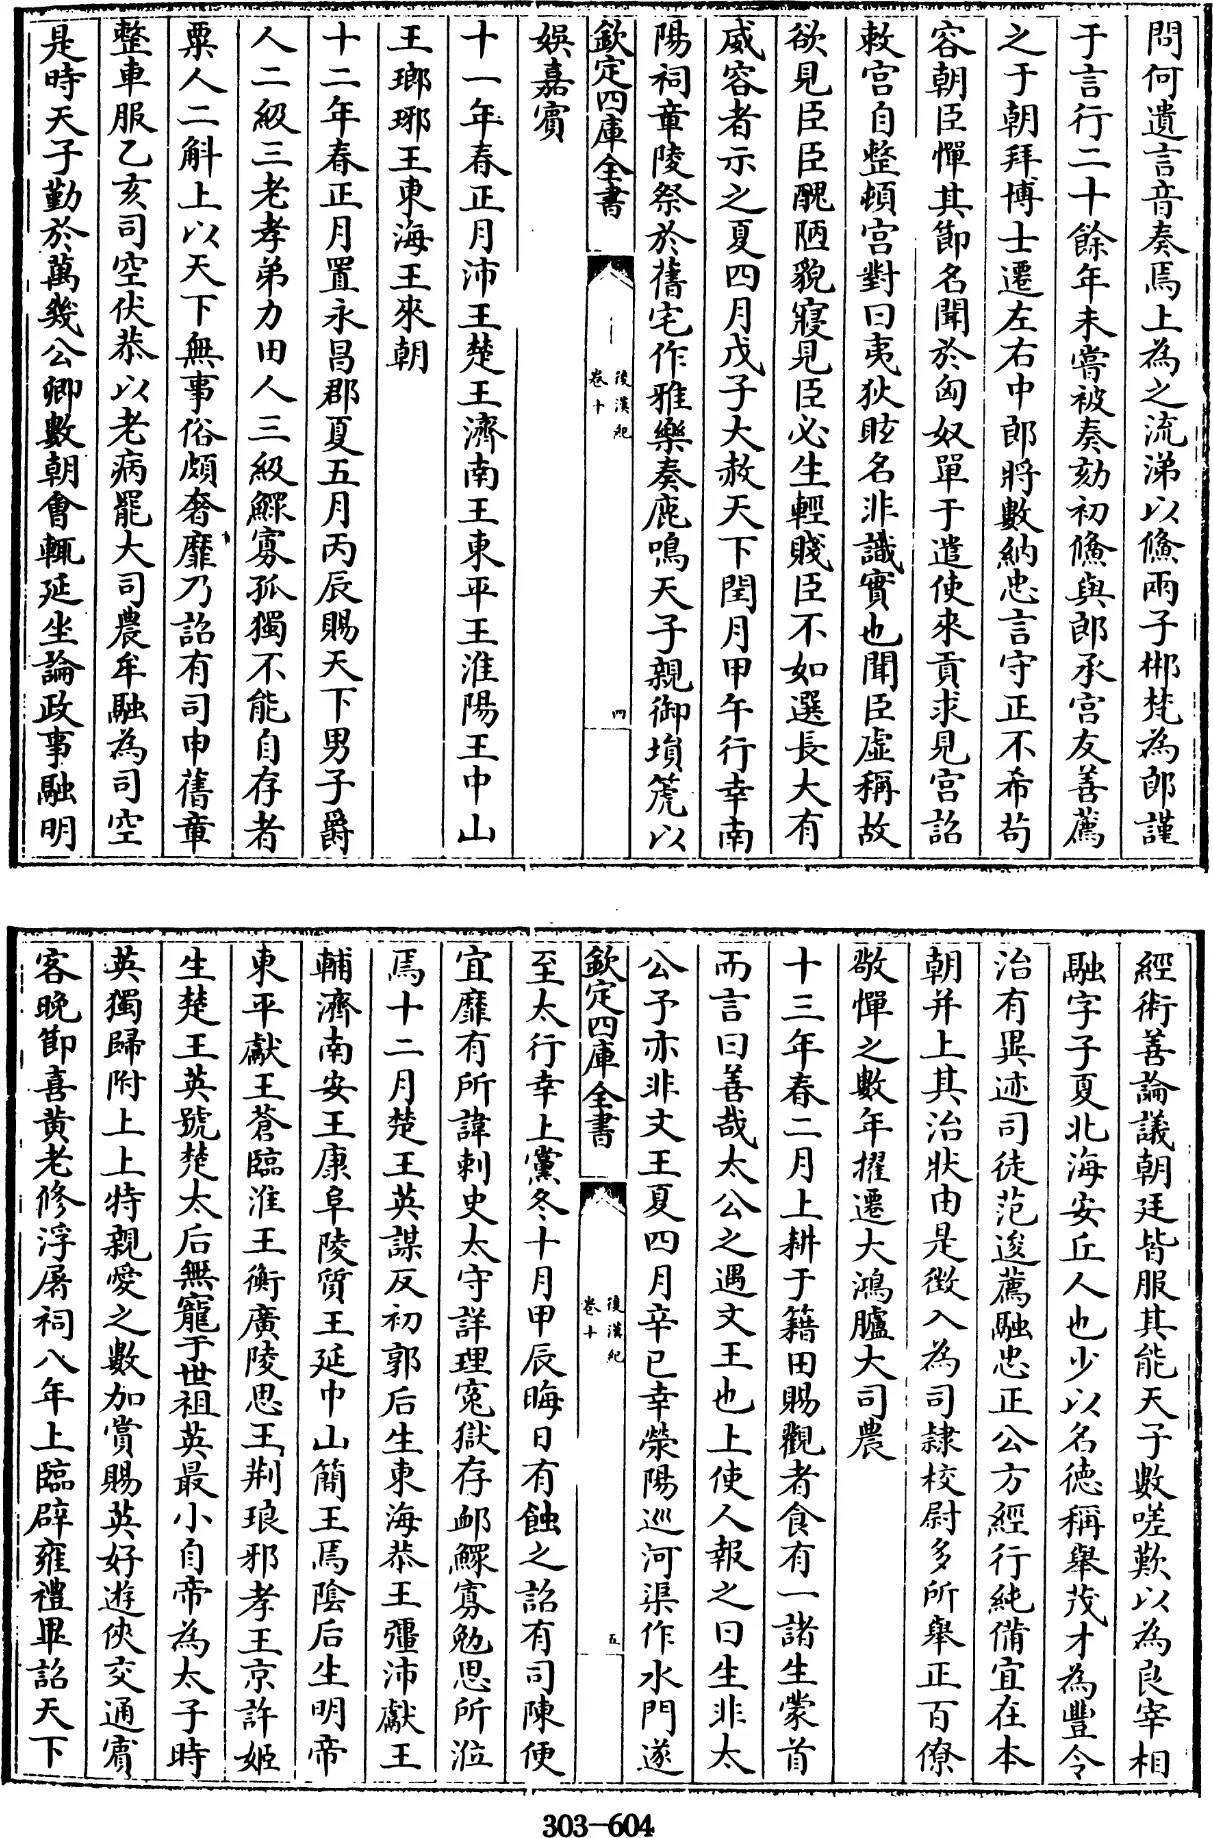 問何遺言音奏焉上為之流涕以鯈兩子郴梵為郎謹
于言行二十餘年未嘗被奏劾初鯈與郎承宮友善薦
之于朝拜博士遷左右中郎將數納忠言守正不希苟
容朝臣憚其節名聞於匈奴單于遣使來貢求見宮詔
敕宮自整頓宮對曰夷狄眩名非識實也聞臣虛稱故
欲見臣臣醜陋貌寢見臣必生輕賤臣不如選長大有
威容者示之夏四月戊子大赦天下閏月甲午行幸南
陽祠章陵祭於舊宅作雅樂奏鹿鳴天子親御塤箎以
欽定四庫全書
後漢紀
卷十
四
娛嘉賓
十一年春正月沛王楚王濟南王東平王淮陽王中山
王瑯琊王東海王來朝
十二年春正月置永昌郡夏五月丙辰賜天下男子爵
人二級三老孝弟力田人三級鰥寡孤獨不能自存者
粟人二斛上以天下無事俗頗奢靡乃詔有司申舊章
整車服乙亥司空伏恭以老病罷大司農牟融為司空
是時天子勤於萬幾公卿數朝會輒延坐論政事融明
經術善論議朝廷皆服其能天子數嗟歎以為良宰相
融字子夏北海安丘人也少以名德稱舉茂才為豐令
治有異迹司徒范逡薦融忠正公方經行純備宜在本
朝并上其治狀由是徵入為司隷校尉多所舉正百僚
敬憚之數年擢遷大鴻臚大司農
十三年春二月上耕于籍田賜觀者食有一諸生蒙首
而言曰善哉太公之遇文王也上使人報之曰生非太
公予亦非文王夏四月辛巳幸滎陽巡河渠作水門遂
欽定四庫全書
後漢紀
卷十
五
至太行幸上黨冬十月甲辰晦日有蝕之詔有司陳便
宜靡有所諱刺史太守詳理寃獄存䘏鰥寡勉思所涖
焉十二月楚王英謀反初郭后生東海恭王彊沛獻王
輔濟南安王康阜陵質王延中山簡王焉陰后生明帝
東平獻王蒼臨淮王衡廣陵思王荆琅邪孝王京許姬
生楚王英號楚太后無寵于世祖英最小自帝為太子時
英獨歸附上上特親愛之數加賞賜英好遊俠交通賓
客晚節喜黄老修浮屠祠八年上臨辟雍禮畢詔天下
303-604